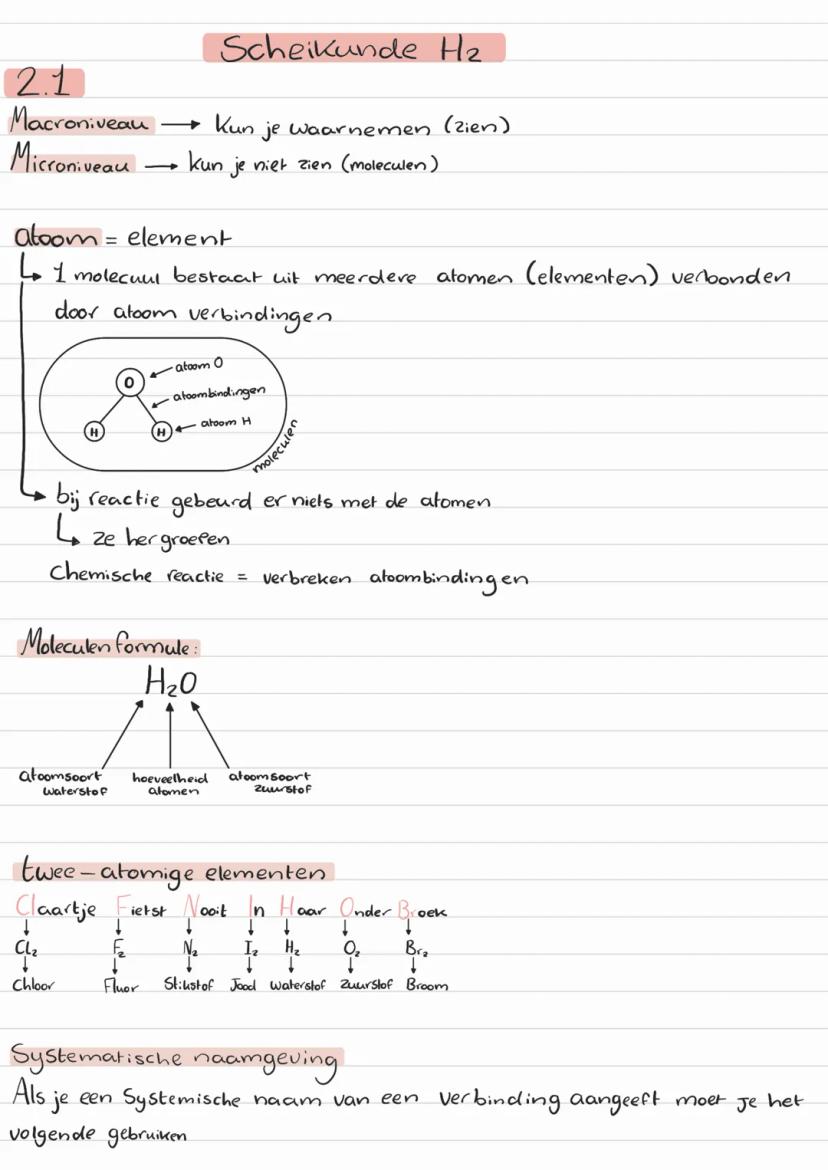 Scheikunde H2
2.1
Macroniveau → Kun je waarnemen (zien)
Microniveau → kun je niet zien (moleculen)
atoom = element
↳ 1 molecuul bestaat uit meerdere atomen (elementen) verbonden
door atoom verbindingen
atoom O
O
atoombindingen
H H atoom H
moleculen
↳ bij reactie gebeurd er niets met de atomen
↳ ze hergroepen
Chemische reactie = verbreken atoombindingen
Moleculen formule:
H₂O
atoomsoort hoeveelheid atoomsoort
waterstof atomen zuurstof
twee-atomige elementen
Claartje Fietst Nooit In Haar Onder Broek
Cl₂ F₂ N₂ I₂ H₂ O₂ Br₂
Chloor Fluor Stikstof Jood waterstof zuurstof Broom
Systematische naamgeving
Als je een Systemische naam van een verbinding aangeeft moet je het
volgende gebruiken